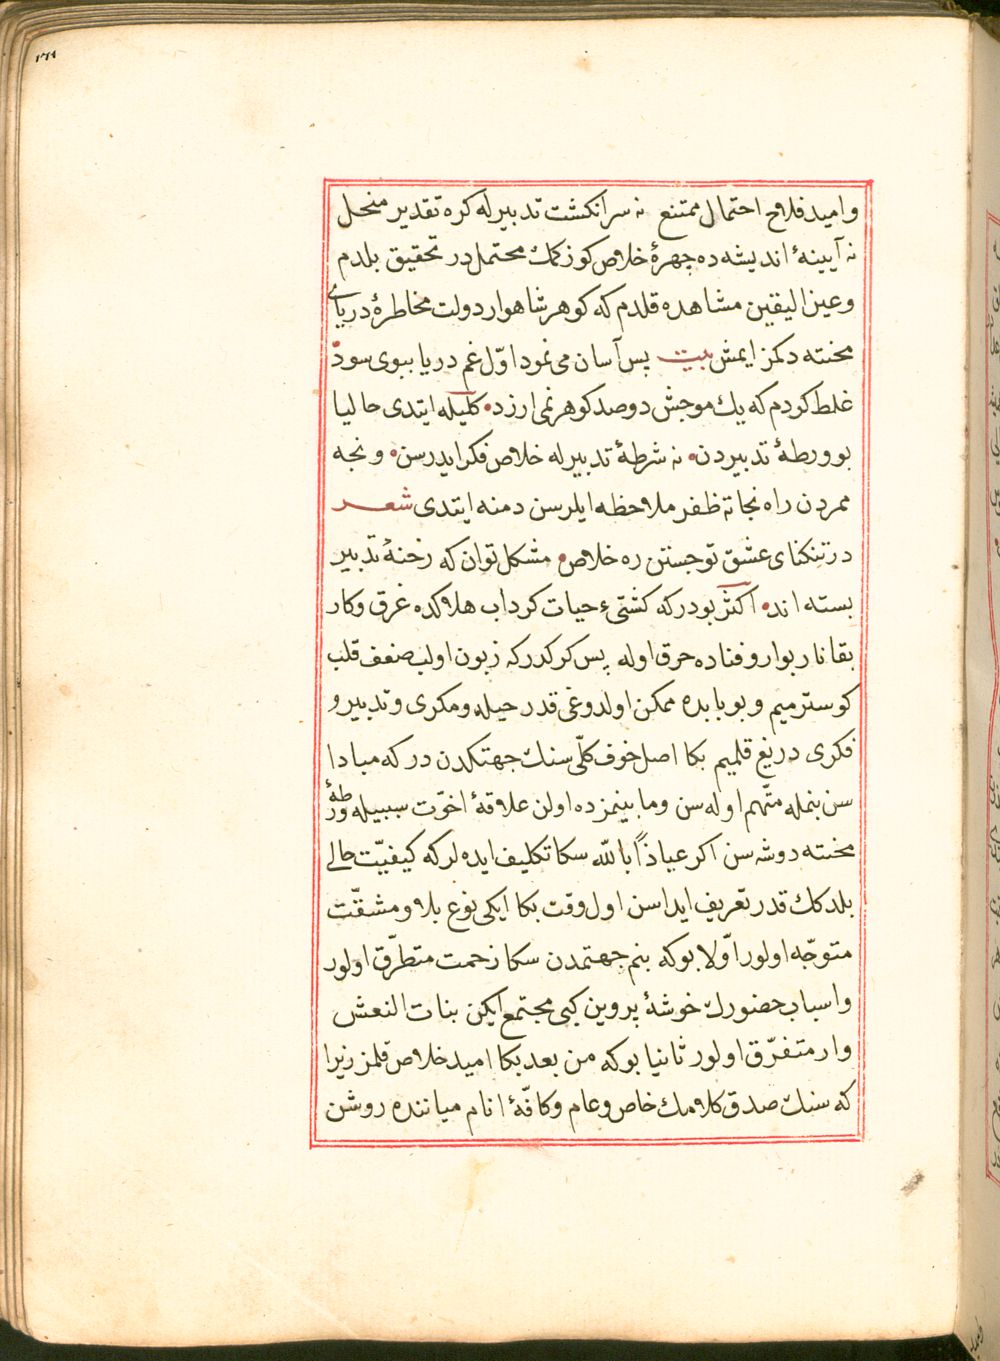 وامید فلاح احتمال ممتنع نه سر انكشت تدبیرله كره تقدیر منحل
نه آیینۀ اندیشه ده چهرۀ خلاص كوزكمك محتملدر تحقیق بلدم
وعین الیقین مشاهده قلدم كه كوهر شاهوار دولت مخاطرۀ دریای
محنته دكمز ایمش بیت بس آسان می نمود اوّل غم دریا ببوی سود
غلط كردم كه یك موجش دوصد كوهر نمی ارزد كلیله ایتدی حالیا
بو ورطۀ تدبیردن نه شرطۀ تدبیرله خلاص فكر ایدرسن ونجه
ممردن راه نجاته ظفر ملاحظه ایلرسن دمنه ایتدی شعر
در تنكنای عشق تو جستن ره خلاص مشكل توان كه رخنۀ تدبیر
بسته اند اكثر بودركه كشتیء حیات كرداب هلاكده غرق وكار
بقا نار بوار وفناده حرق اوله پس كركدركه زبون اولب ضعف قلب
كوسترمیم وبو بابده ممكن اولدوغی قدر حیله ومكری وتدبیر و
فكری دریغ قلمیم بكا اصل خوف كلّی سنك جهتكدن در كه مبادا
سن بنمله متّهم اوله سن ومابینمزده اولن علاقۀ اخوّت سببیله ورطۀ
محنته دوشه سن اكر عیاذاً بالله سكا تكلیف ایده لر كه كیفیّت حالی
بلدكك قدر تعریف ایداسن اول وقت بكا ایكی نوع بلا ومشقّت
متوجّه اولور اوّلا بوكه بنم جهتمدن سكا زحمت متطرّق اولور
واسباب حضورك خوشۀ پروین كبی مجتمع ایكن بنات النعش
وار متفرّق اولور ثانیا بوكه من بعد بكا امید خلاص قلمز زیرا
كه سنك صدق كلامك خاص وعام وكافّۀ انام میاننده روشن